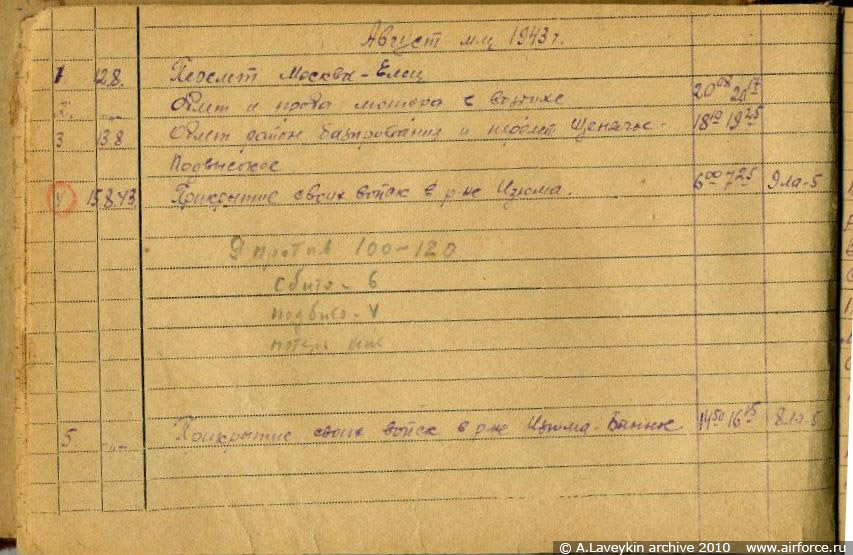 Август м-ц 1943 г.
1. 12.8. Перелет Москва - Елец
2. -"- Облет и проба мотора в воздухе 20 08 20 17
3 13.8 Облет район базирования и перелет 18 10 19 25
Подвысокое
4 15.8.43 Прикрытие своих войск в р-не Изюма. 6 00 7 25 9 Ла-5
9 против 100-120
сбито - 6
подбито - 4
потерь нет
5. -"- Прикрытие своих войск в р-не Изюма - 14 50 16 15 8 Ла-5
© A.Laveykin archive 2010 www.airforce.ru